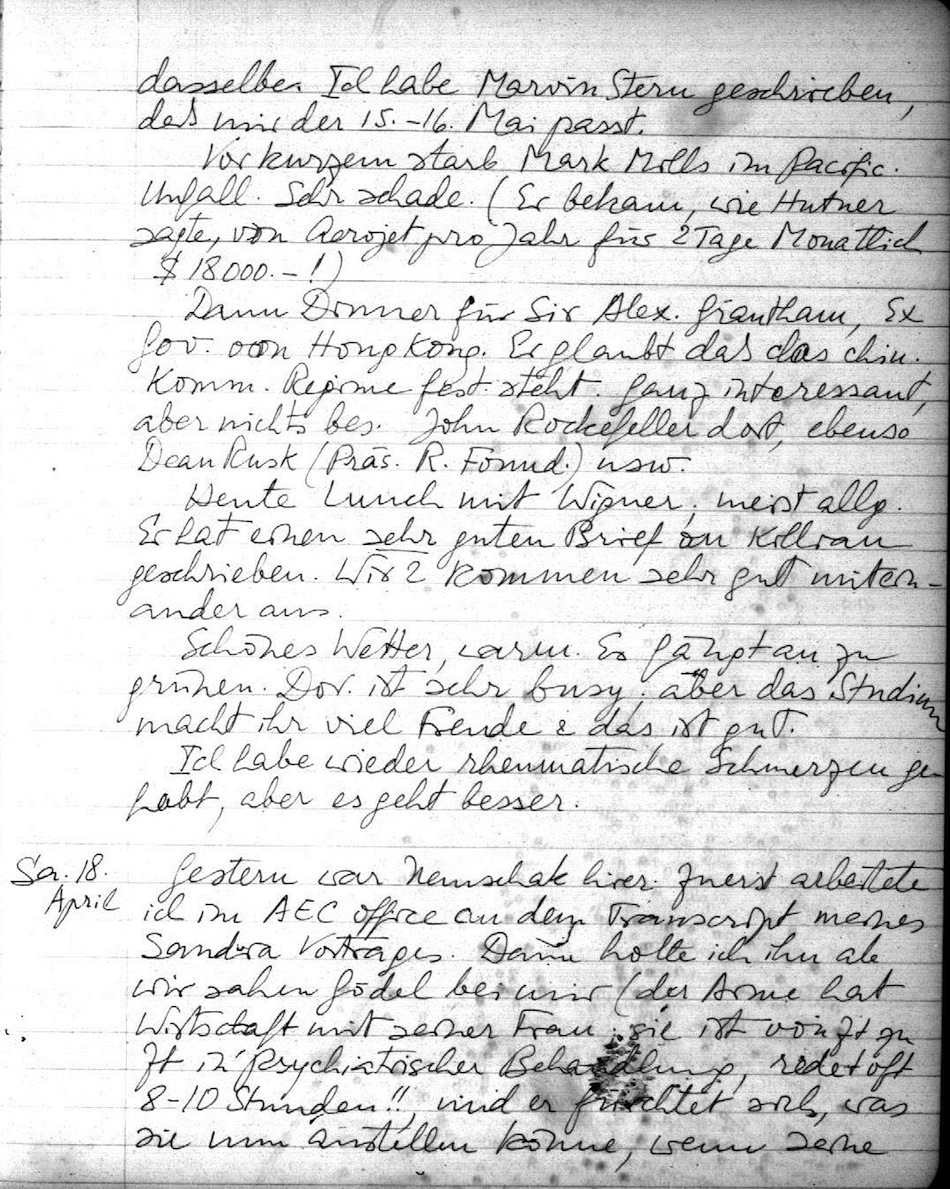 dasselbe. Ich habe Marvin Stern geschrieben,
das mir der 15.-16. Mai passt.
Vor kurzem starb Mark Mills im Pacific.
Unfall. Sehr schade. (Er bekam, wie Hutner
sagte, von Aerojet pro Jahr für 2 Tage Monatlich
$ 18000.-!)
Dann Dinner für Sir Alex. Grantham, Ex
Gov. von Hongkong. Er glaubt das das chin.
Komm. Regime fest steht. Ganz interessant,
aber nichts bes. John Rockefeller dort, ebenso
Dean Rusk (Präs. R. Found.) usw.
Heute Lunch mit Wigner, meist allg.
Er hat einen sehr guten Brief an Killian
geschrieben. Wir 2 kommen sehr gut mitein-
ander aus.
Schönes Wetter, warm. Es fängt an zu
grünen. Dor. ist sehr busy, aber das Studium
macht ihr viel Freude & das ist gut.
Ich habe wieder rheumatische Schmerzen ge-
habt, aber es geht besser.
Sa. 18. Gestern war Nemschak hier. Zuerst arbeitete
April ich im AEC office an dem Transcript meines
Sandia Vortrages. Dann holte ich ihn ab
wir sahen Gödel bei mir (der Arme hat
Wirtschaft mit seiner Frau; sie ist von Zt zu
Zt in psychiatrischer Behandlung, redet oft
8-10 Stunden!!, und er fürchtet sich, was
sie nun anstellen könne, wenn seine